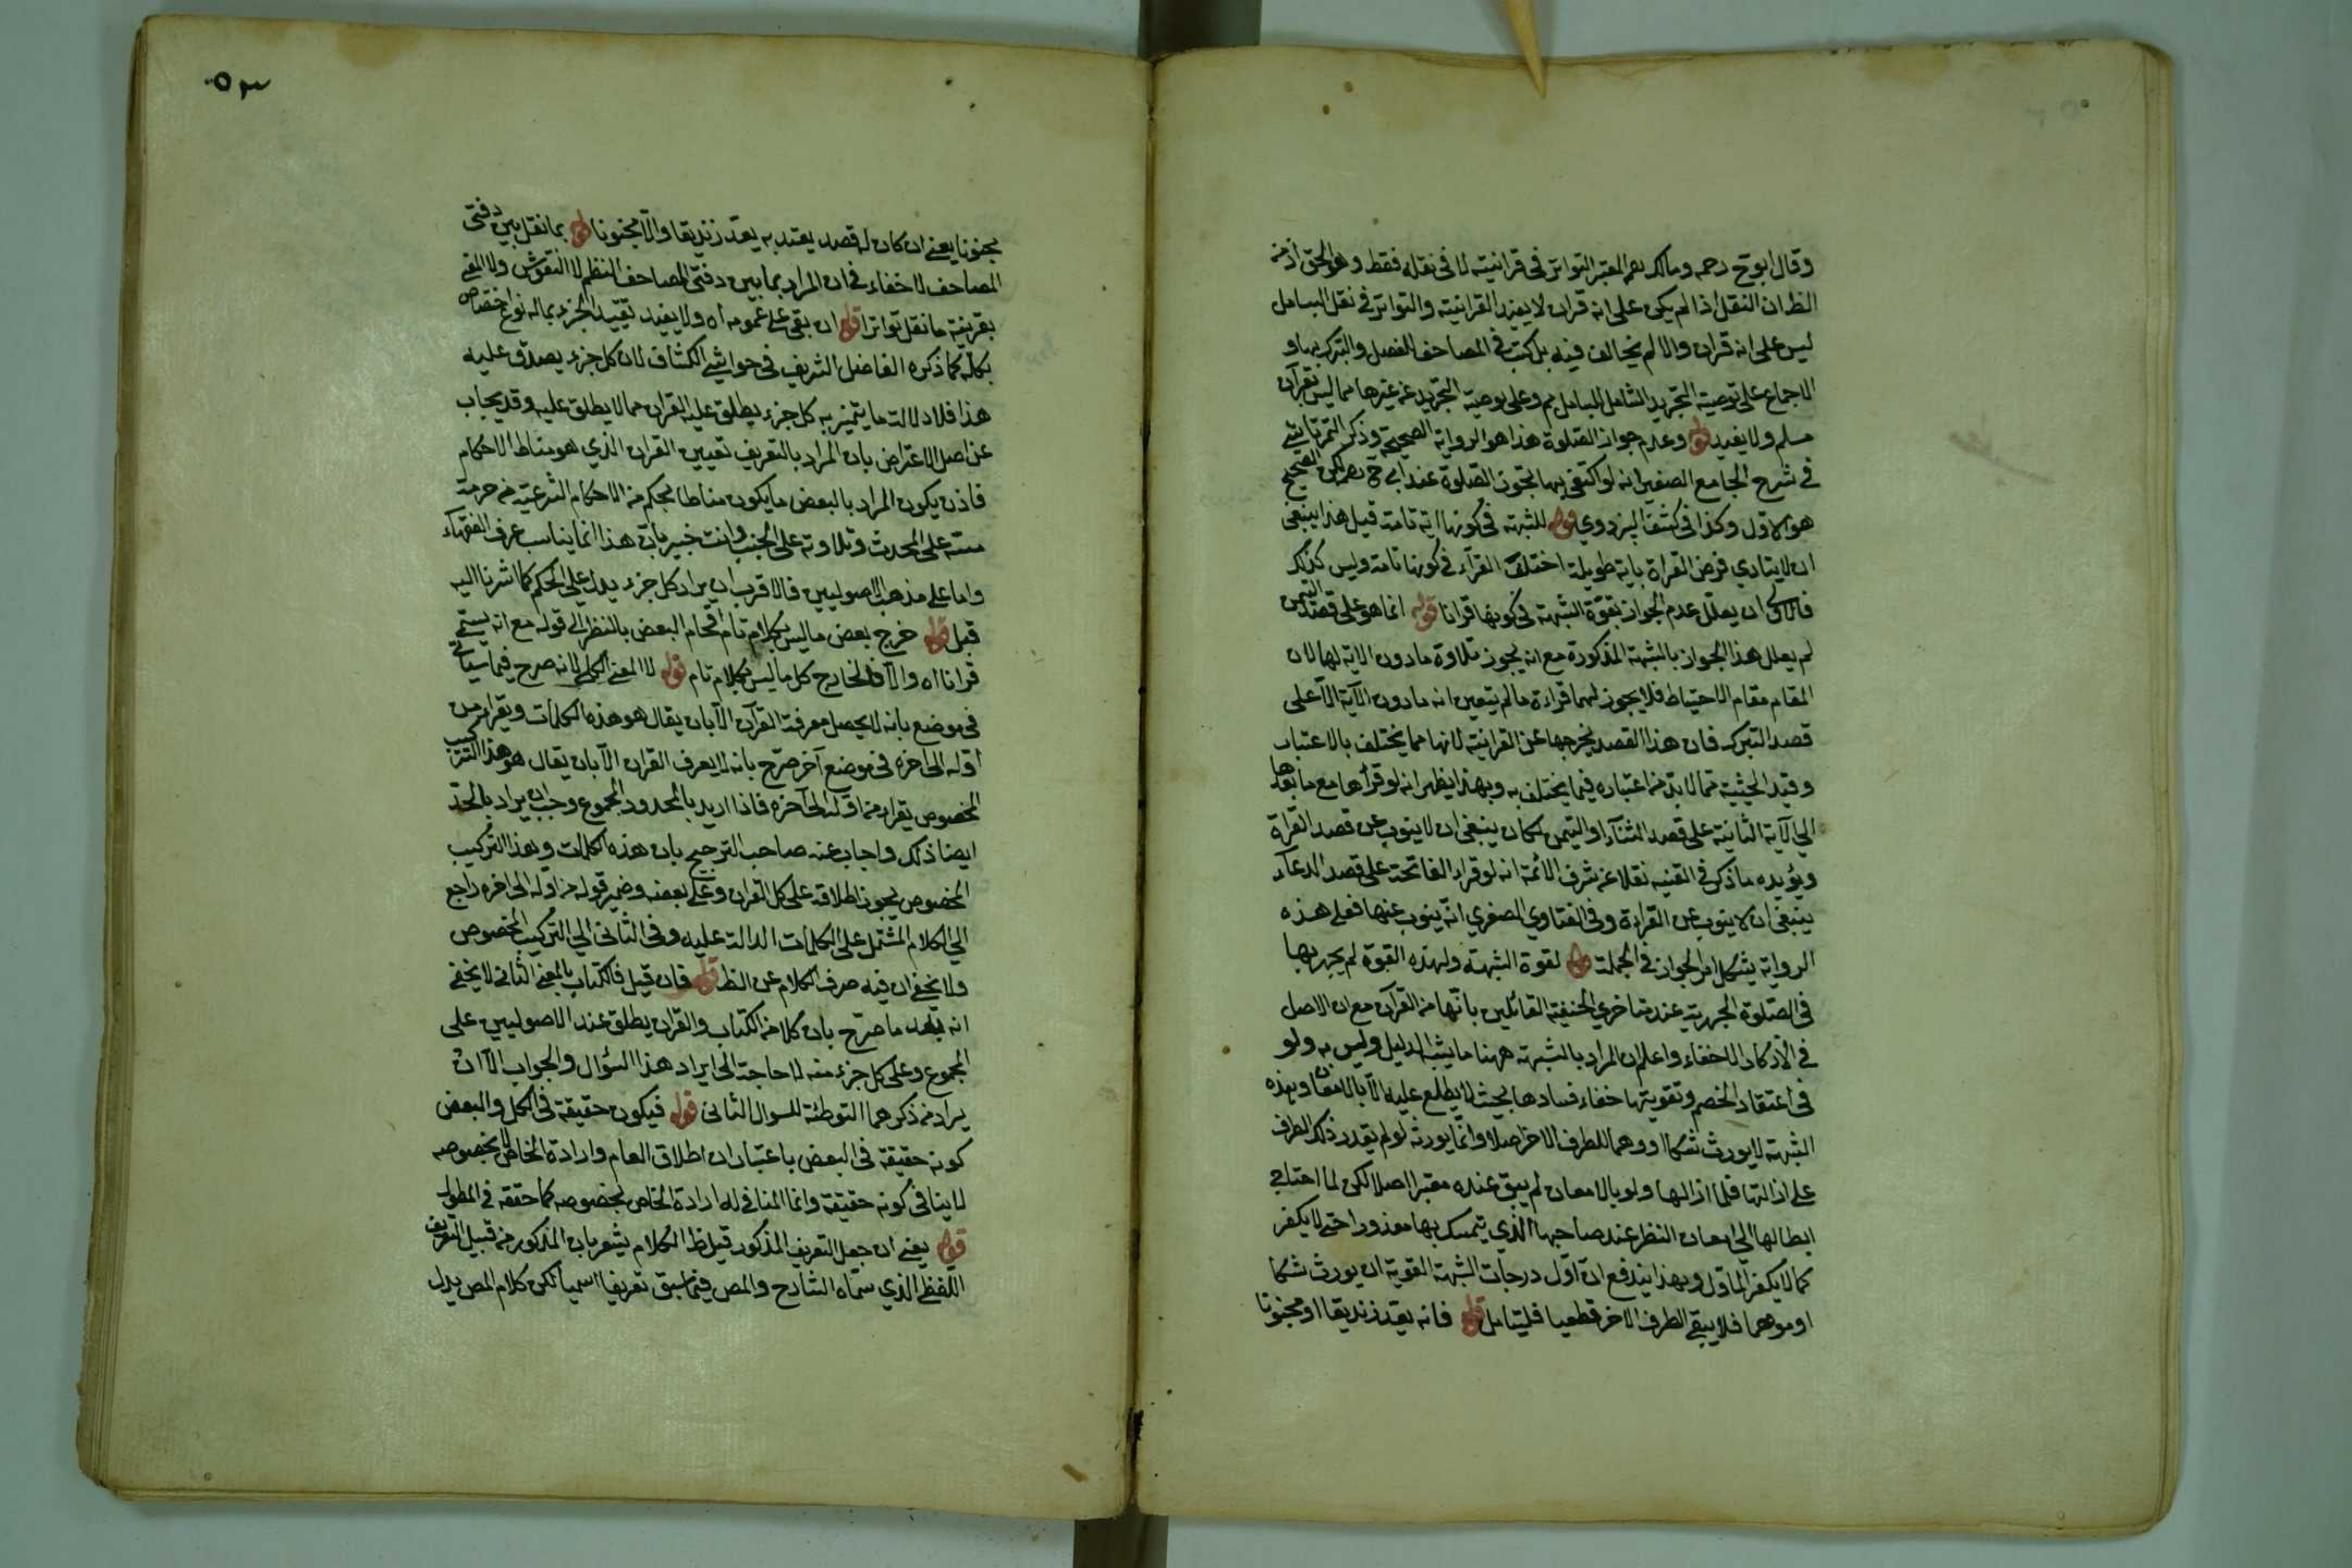 وقال ابوح رحمه ومالك رحم المعتبر التواتر فى قرانيته لا فى نقله فقط وهو الحق اذ من
الظ ان النقل اذا لم يكن على انه قران لا يفيد القرانية والتواتر فى نقل البسامل
ليس على انه قران والا لم يخالف فيه بل كتبت فى المصاحف للفصل والتبرك بها و
الاجماع على توصية التجريد الشامل للبسامل مم وعلى توصية التجريد عن غيرها مما ليس بقرآن
مسلم ولا يفيد قوله وعدم جواز الصلوة هذا هو الرواية الصحيحة وذكر التمرتاشي
فى شرح الجامع الصغير انه لو اكتفى بها تجوز الصلوة عند ابى ح رحم لكن الصحيح
هو الاول وكذا فى كشف البزدوي قوله للشبهة فى كونها اية تامة قيل هذا ينبغى
ان لا يتادي فرض القراة باية طويلة اختلف القرآء فى كونها تامة وليس كذلك
فالاولى ان يعلل عدم الجواز بقوة الشبهة فى كونها قرانا قوله انما هو على قصد التيمن
لم يعلل هذا الجواز بالشبهة المذكورة مع انه يجوز تلاوة ما دون الاية لها لان
المقام مقام الاحتياط فلا يجوز لهما قراءة ما لم يتعين انه ما دون الآية الا على
قصد التبرك فان هذا القصد يخرجها عن القرانية لانها مما يختلف بالاعتبار
وقيد الحيثية مما لا بد من اعتباره فيما يختلف به وبهذا يظهر انه لو قرأها مع ما بعدها
الى الآية الثانية على قصد الثنآء او التيمن لكان ينبغى ان لا ينوب عن قصد القراة
ويؤيده ما ذكر فى القنيه نقلا عن شرف الائمة انه لو قراء الفاتحة على قصد الدعآء
ينبغى ان لا ينوب عن القراءة وفى الفتاوي الصغري انه ينوب عنها فعلى هذه
الرواية يشكل امر الجواز فى الجملة قوله لقوة الشبهة ولهذه القوة لم يجهر بها
فى الصلوة الجهرية عند متاخري الحنفية القائلين بانها من القرآن مع ان الاصل
فى الاذكار الاخفاء واعلم ان المراد بالشبهة ههنا ما يشبه الدليل وليس به ولو
فى اعتقاد الخصم وتقويتها خفاء فسادها بحيث لا يطلع عليه الا بالامعان وبهذه
الشبهة لا يورث شكا او وهما للطرف الاخر اصلا وانما يورثه لو لم يقدر ذلك الطرف
على ازالتها فلما ازالها ولو بالامعان لم يبق عنده معتبرا اصلا لكن لما احتاج
ابطالها الى امعان النظر عند صاحبها الذي يتمسك بها معذورا حتى لا يكفر
كما لا يكفر الماول وبهذا يندفع ان اول درجات الشبهة القوية ان يورث شكا
او موهما فلا يبقى الطرف الاخر قطعيا فليتامل قوله فانه يعد زنديقا او مجنونا
٥٣
مجنونا يعنى ان كان له قصد يعتد به يعد زنديقا والا مجنونا قوله بما نقل بين دفتى
المصاحف لا خفاء فى ان المراد بما بين دفتى المصاحف النظم لا النقوش ولا المعنى
بقرينة ما نقل تواترا قوله ان بقى على عمومه اه ولا يفيد تقييد الجزء بماله نوع اختصاص
بكله كما ذكره الفاضل الشريف فى حواشى الكشاف لان كل جزء يصدق عليه
هذا فلا دلالة ما يتميز به كل جزء يطلق عليه القران مما لا يطلق عليه وقد يجاب
عن اصل الاعتراض بان المراد بالتعريف تعيين القران الذي هو مناط الاحكام
فاذن يكون المراد بالبعض ما يكون مناطا لحكم من الاحكام الشرعية من حرمة
مسه على المحدث وتلاوته على الجنب وانت خبير بان هذا انما يناسب عرف الفقهآء
واما على مذهب الاصوليين فالاقرب ان يراد كل جزء يدل على الحكم كما اشرنا اليه
قبل قوله خرج بعض ما ليس بكلام تام اقحام البعض بالنظر الى قوله مع انه يسمى
قرانا اه والا فالخارج كل ما ليس بكلام تام قوله لا المعنى الكلى لانه صرح فيما سياتى
فى موضع بانه لا يحصل معرفة القرآن الا بان يقال هو هذه الكلمات ويقراء من
اوله الى اخره فى موضع آخر صرح بانه لا يعرف القران الا بان يقال هو هذا التركيب
المخصوص يقراء من اوله الى آخره فاذا اريد بالمحدود المجموع وجب ان يراد بالحد
ايضا ذلك واجاب عنه صاحب الترجيح بان هذه الكلمات وهذا التركيب
المخصوص يجوز اطلاقه على كل القران وعلى بعضه وضمير قوله من اوله الى اخره راجع
الى الكلام المشتمل على الكلمات الدالة عليه وفى الثانى الى التركيب المخصوص
ولا يخفى ان فيه صرف الكلام عن الظ قوله فان قيل فالكتاب بالمعنى الثانى لا يخفى
انه بعد ما صرح بان كلا من الكتاب والقران يطلق عند الاصوليين على
المجموع وعلى كل جزء منه لا حاجة الى ايراد هذا السؤال والجواب الا ان
يراد من ذكرهما التوطئة للسوال الثانى قوله فيكون حقيقة فى الكل والبعض
كونه حقيقة فى البعض باعتبار ان اطلاق العام وارادة الخاص لا بخصوصه
لا ينافى كونه حقيقة وانما المنافى له ارادة الخاص بخصوصه كما حققه فى المطول
قوله يعنى ان جعل التعريف المذكور قيل ظ الكلام يشعر بان المذكور من قبيل التعريف
اللفظى الذي سماه الشارح والمص فيما سبق تعريفا اسميا لكن كلام المص يدل